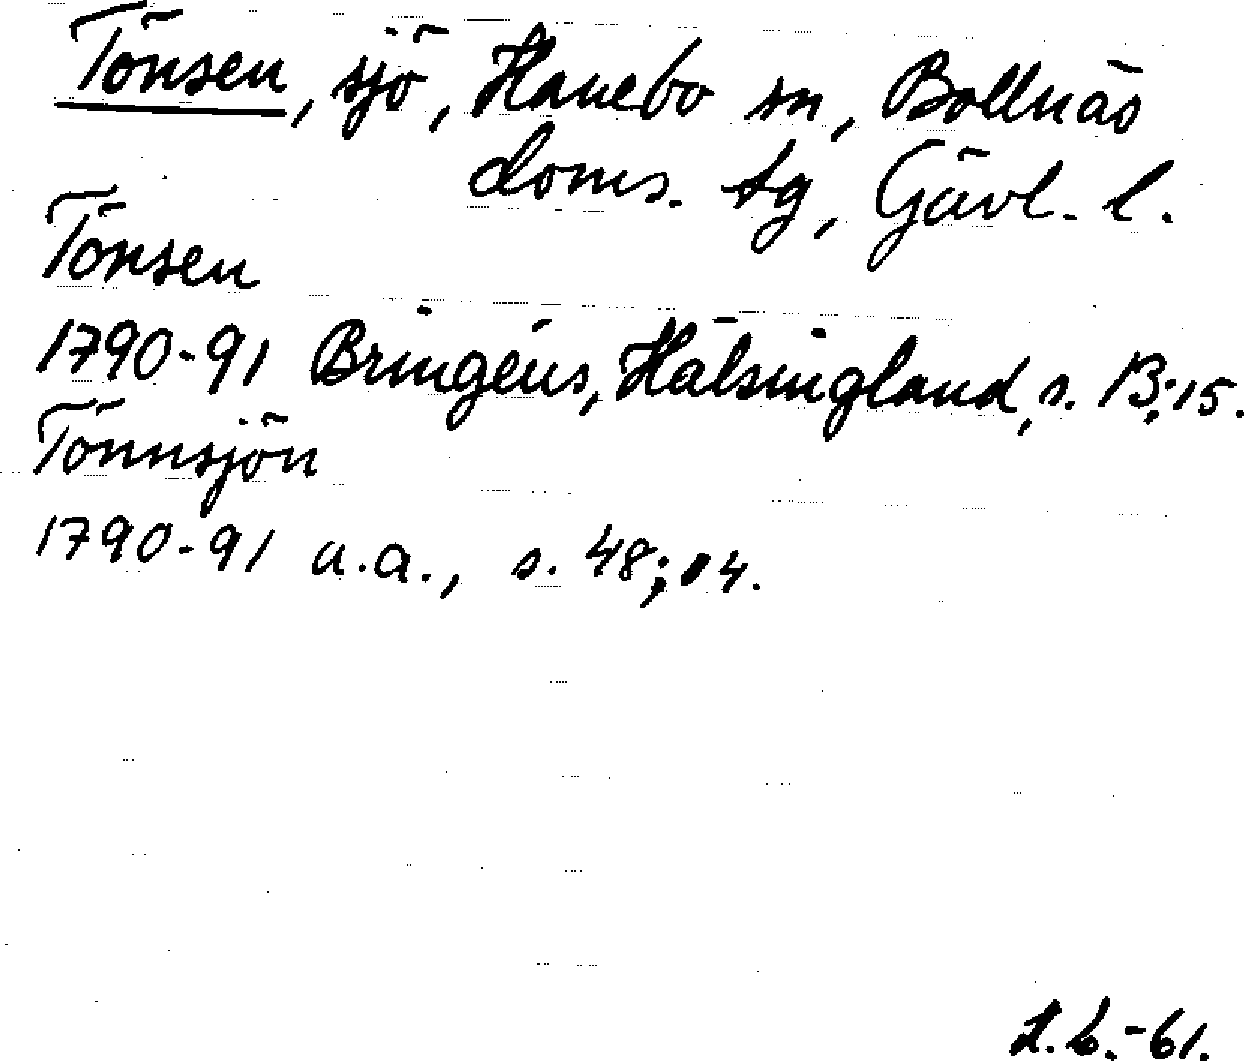 Tönsen, sjö, Hanebo sn, Bollnäs
doms. tg, Gävl. l.
Tönsen
1790-91 Bringéus, Hälsingland, s. 13; 15.
Tönnsjön
1790-91 a.a., s. 48; 04.
L.B.-61.